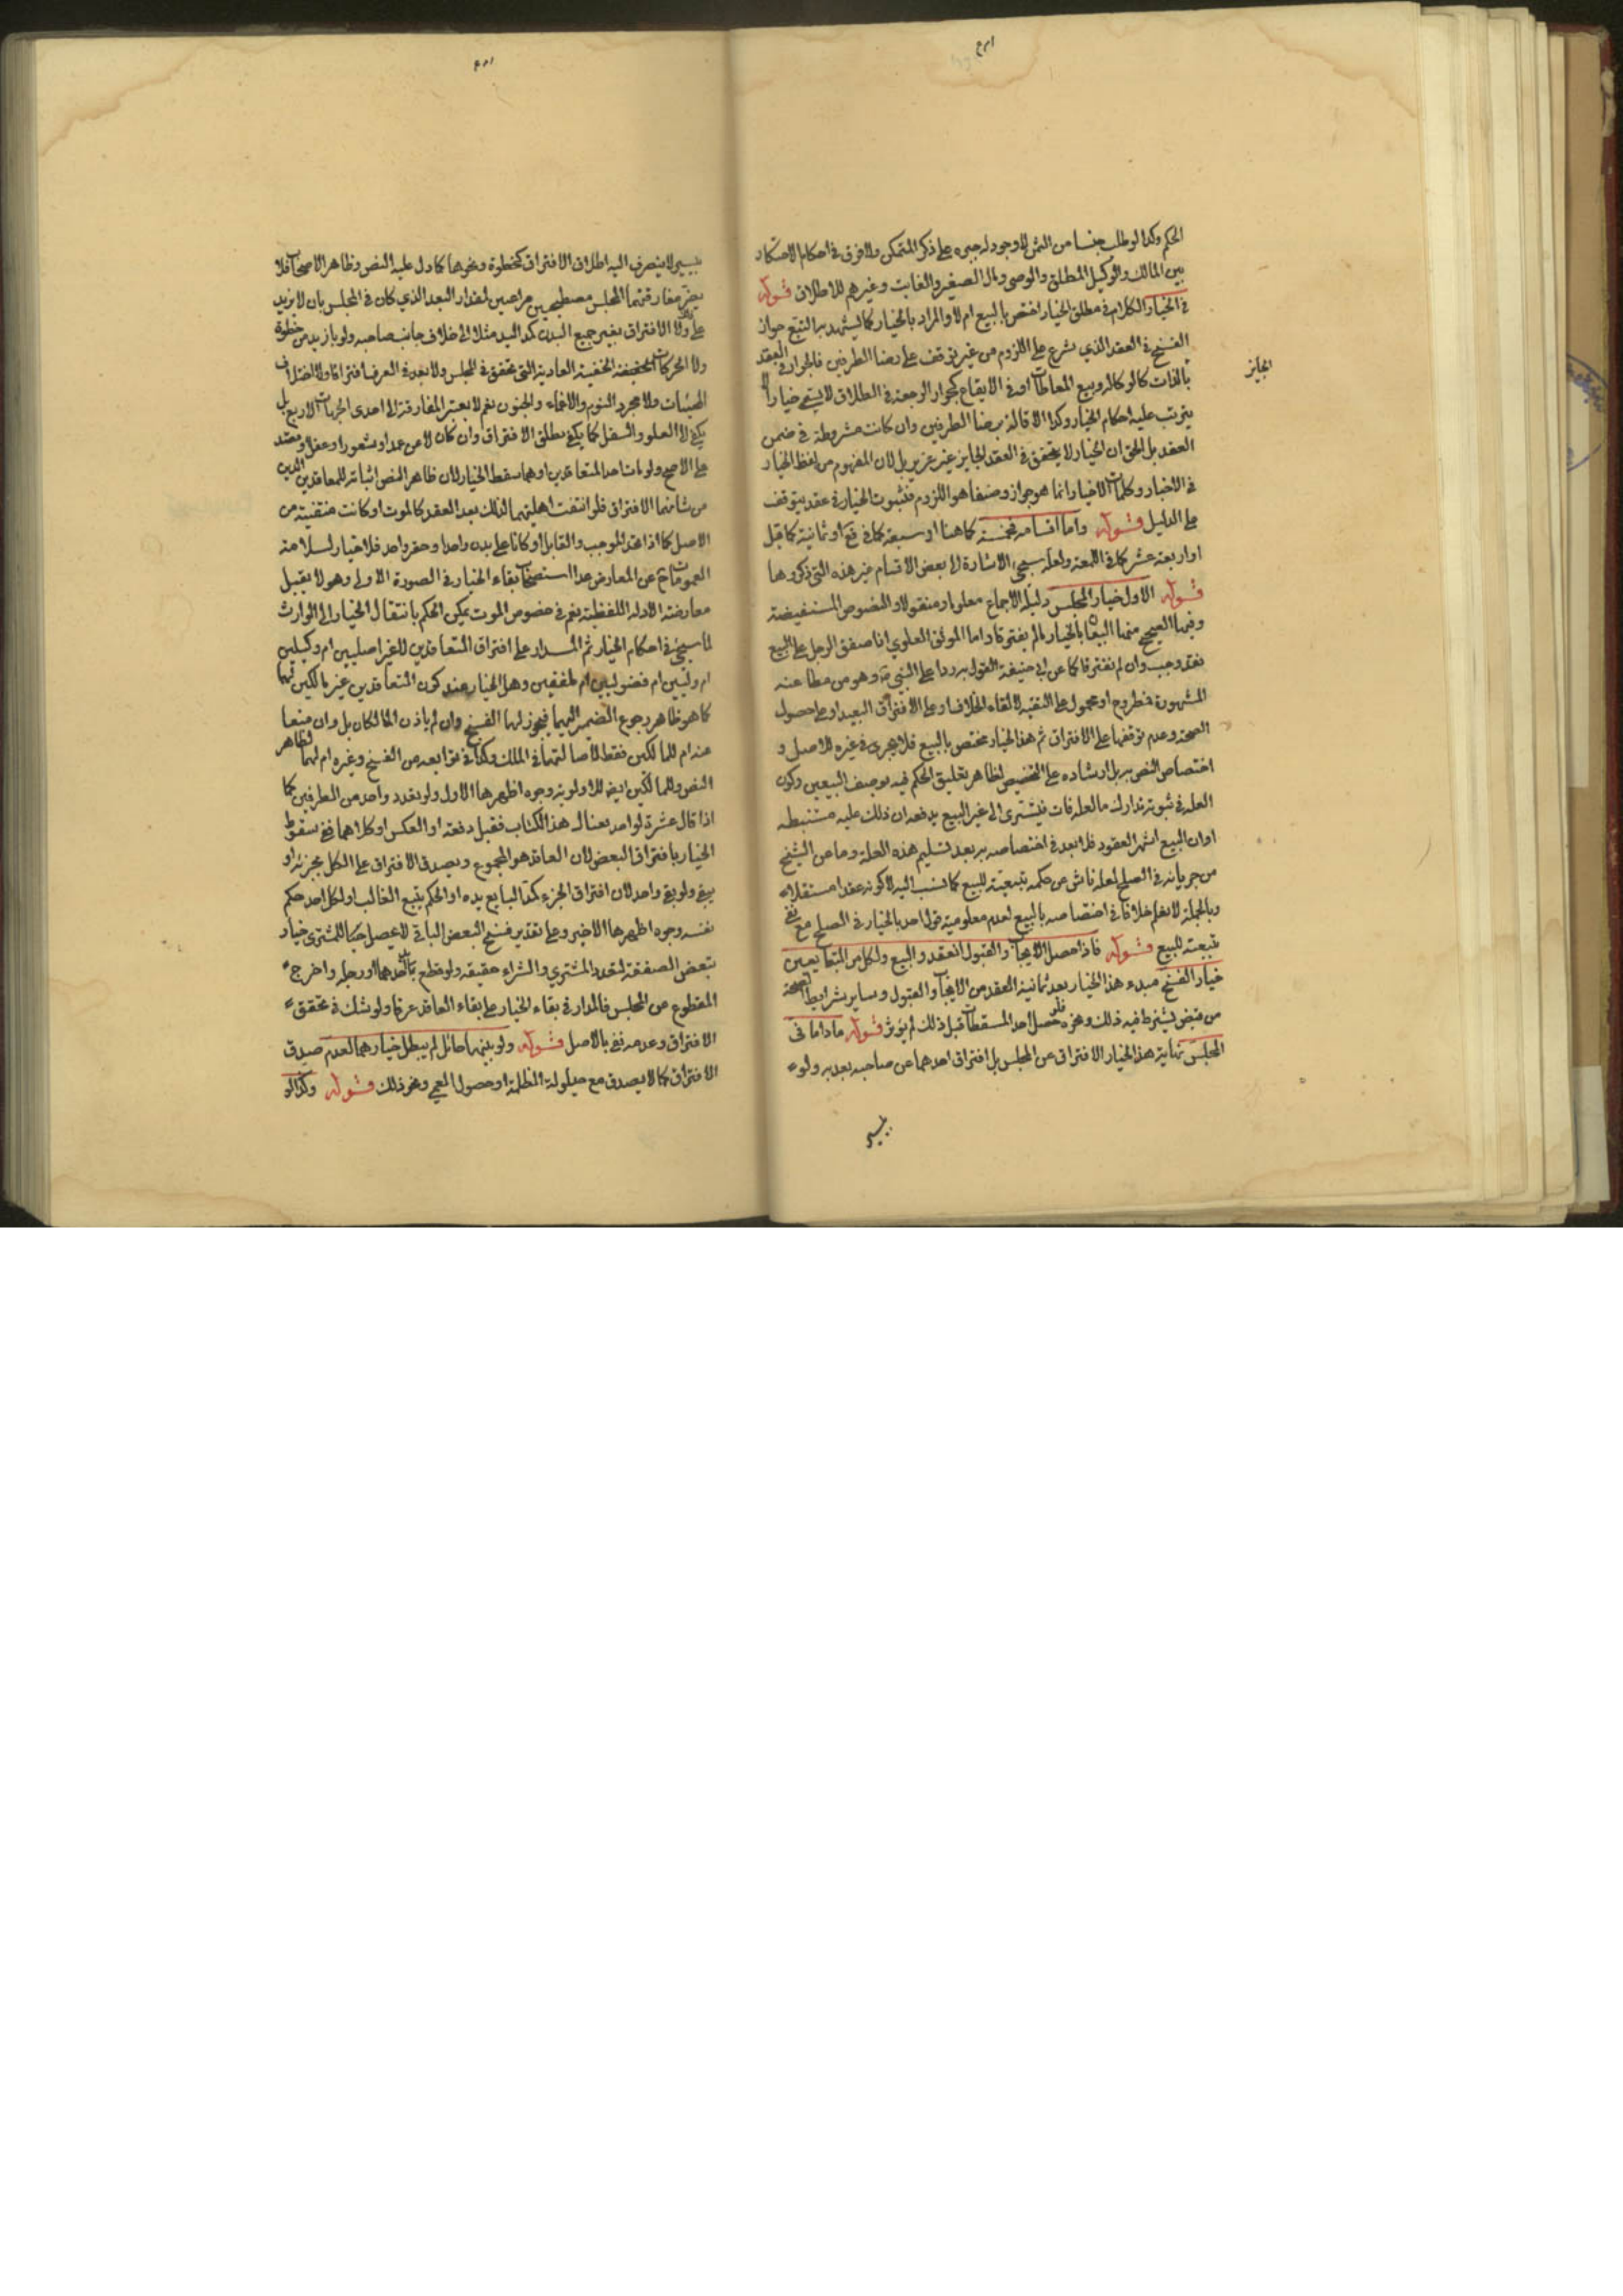 الحكم وكذا لو طلب جنسا من الثمن لا وجود له جبره على ذكر المتمكن ولا فرق في احكام الاحتكار
بين المالك والوكيل المطلق والوصي ومال الصغير والغايب وغيرهم للاطلاق قوله
في الخيار الكلام في مطلق الخيار اختص بالبيع ام لا والمراد بالخيار كما يشهد به التتبع جواز
الفسخ في العقد الذي شرع على اللزوم من غير توقف على رضا الطرفين فالجواز في العقد
الجايز
بالذات كالوكالة وبيع المعاطات او في الايقاع كجواز الرجعة في الطلاق لا يسمى خيارا ولا
يترتب عليه احكام الخيار وكذا الاقالة برضا الطرفين وان كانت مشروطة في ضمن
العقد بل الحق ان الخيار لا يتحقق في العقد الجايز غير عزيز بل لان المفهوم من لفظ الخيار
في الاخبار وكلمات الاخيار انما هو جواز وصفا هو اللزوم فثبوت الخيار في عقد يتوقف
على الدليل قوله واما اقسامه فخمسة كما هنا او سبعة كما في فع او ثمانية كما قيل
او اربعة عشر كما في اللمعة ولعله سيجيء الاشارة الى بعض الاقسام غير هذه التي ذكروها
قوله الاول خيار المجلس دليله الاجماع معلوما ومنقولا والنصوص المستفيضة
وفيها الصحيح منها البيعان بالخيار ما لم يفترقا واما الموثق العلوي اذا صفق الرجل على البيع
فقد وجب وان لم يفترقا كما عن ابي حنيفة القول به ردا على النبي ص وهو من مطاعنه
المشهورة فمطروح او محمول على التقية لالقاء الخلاف او على الافتراق البعيد او على حصول
الصحة وعدم توقفها على الافتراق ثم هذا الخيار مختص بالبيع فلا يجري في غيره للاصل و
اختصاص النص به بل ارشاده على التخصيص لظاهر تعليق الحكم فيه بوصف البيعين وكون
العلة في ثبوته تدارك ما لعله فات فيسرى الى غير البيع يدفعه ان ذلك علية مستنبطه
او ان البيع اشهر العقود فلا بعد في اختصاصه به بعد تسليم هذه العلة وما عن الشيخ
من جريانه في الصلح لعله ناش عن حكمه بتبعيته للبيع كما نسب اليه لا كونه عقدا مستقلا
وبالجملة لا نعلم خلافا في اختصاصه بالبيع لعدم معلومية قول احد بالخيار في الصلح مع نفي
تبعيته للبيع قوله فاذا حصل الايجاب والقبول انعقد البيع ولكل من المتبايعين
خيار الفسخ مبدء هذا الخيار بعد ثمانية العقد من الايجاب والقبول وساير شرايط الصحة
من قبض يشترط فيه ذلك وغيره فلو حصل احد المسقطات قبل ذلك لم يؤثر قوله ما داما في
المجلس نهاية هذا الخيار الافتراق عن المجلس بل افتراق احدهما عن صاحبه بعد به ولو
بيسير
بيسير لا ينصرف اليه اطلاق الافتراق كخطوة ونحوها كما دل عليه النص وظاهر الاصحاب فلا
يضر مفارقتهما المجلس مصطحبين مراعيين لمقدار البعد الذي كان في المجلس بان لا يزيد
عليه ولا الافتراق بغير جميع البدن كمد اليد مثلا الى خلاف جانب صاحبه ولو بازيد من خطوة
ولا الحركات الخفيفة الخفية العادية التي تتحقق في المجلس ولا يعد في العرف افتراقا ولا اختلاف
الهيئات ولا مجرد النوم والاغماء والجنون نعم لا يعتبر المفارقة الى احدى الجهات الاربع بل
يكفي الى العلو والسفل كما يكفي مطلق الافتراق وان كان لا عن عمد او شعور او عقل او قصد
على الاصح ولو مات احد المتعاقدين او هما سقط الخيار لان ظاهر النص اثباته للمعاقدين الذين
من شانهما الافتراق فلو انتفت اهليتهما لذلك بعد العقد كالموت او كانت منتفية من
الاصل كما اذا اتحد الموجب والقابل او كانا على بدن واحد وحقو واحد فلا خيار لسلامة
العمومات ح عن المعارض عدا استصحاب بقاء الخيار في الصورة الاولى وهو لا يقبل
معارضة الادلة اللفظية نعم في خصوص الموت يمكن الحكم بانتقال الخيار الى الوارث
لما سيجيء في احكام الخيار ثم المدار على افتراق المتعاقدين للغير اصليين ام وكيلين
ام وليين ام فضوليين ام ملفقين وهل الخيار عند كون المتعاقدين غير مالكين لهما
كما هو ظاهر رجوع الضمير اليهما فيجوز لهما الفسخ وان لم ياذن المالكان بل وان منعا
عنه ام للمالكين فقط لاصالتهما في الملك وكذا في توابعه من الفسخ وغيره ام لهما لظاهر
النص وللمالكين ايضا للاولوية وجوه اظهرها الاول ولو تعدد واحد من الطرفين كما
اذا قال عشرة لواحد بعناك هذا الكتاب فقبل دفعة او العكس او كلاهما ففي سقوط
الخيار بافتراق البعض لان العاقد هو المجموع ويصدق الافتراق على الكل بجزئه او
يبقى ولو بقي واحد لان افتراق الجزء كمد البايع يده او الحكم يتبع الغالب او لكل احد حكم
نفسه وجوه اظهرها الاخير وعلى تقدير فسخ البعض الباقي لا يحصل ح للمشتري خيار
تبعض الصفقة لتعدد المشتري والشراء حقيقة ولو قطع يد احدهما او رجله واخرج
المقطوع من المجلس فالمدار في بقاء الخيار على بقاء العاقد عرفا ولو شك في تحقق
الافتراق وعدمه نفي بالاصل قوله ولو بينهما حائل لم يبطل خيارهما لعدم صدق
الافتراق كما لا يصدق مع حيلولة الظلمة او حصول العمى ونحو ذلك قوله وكذا لو